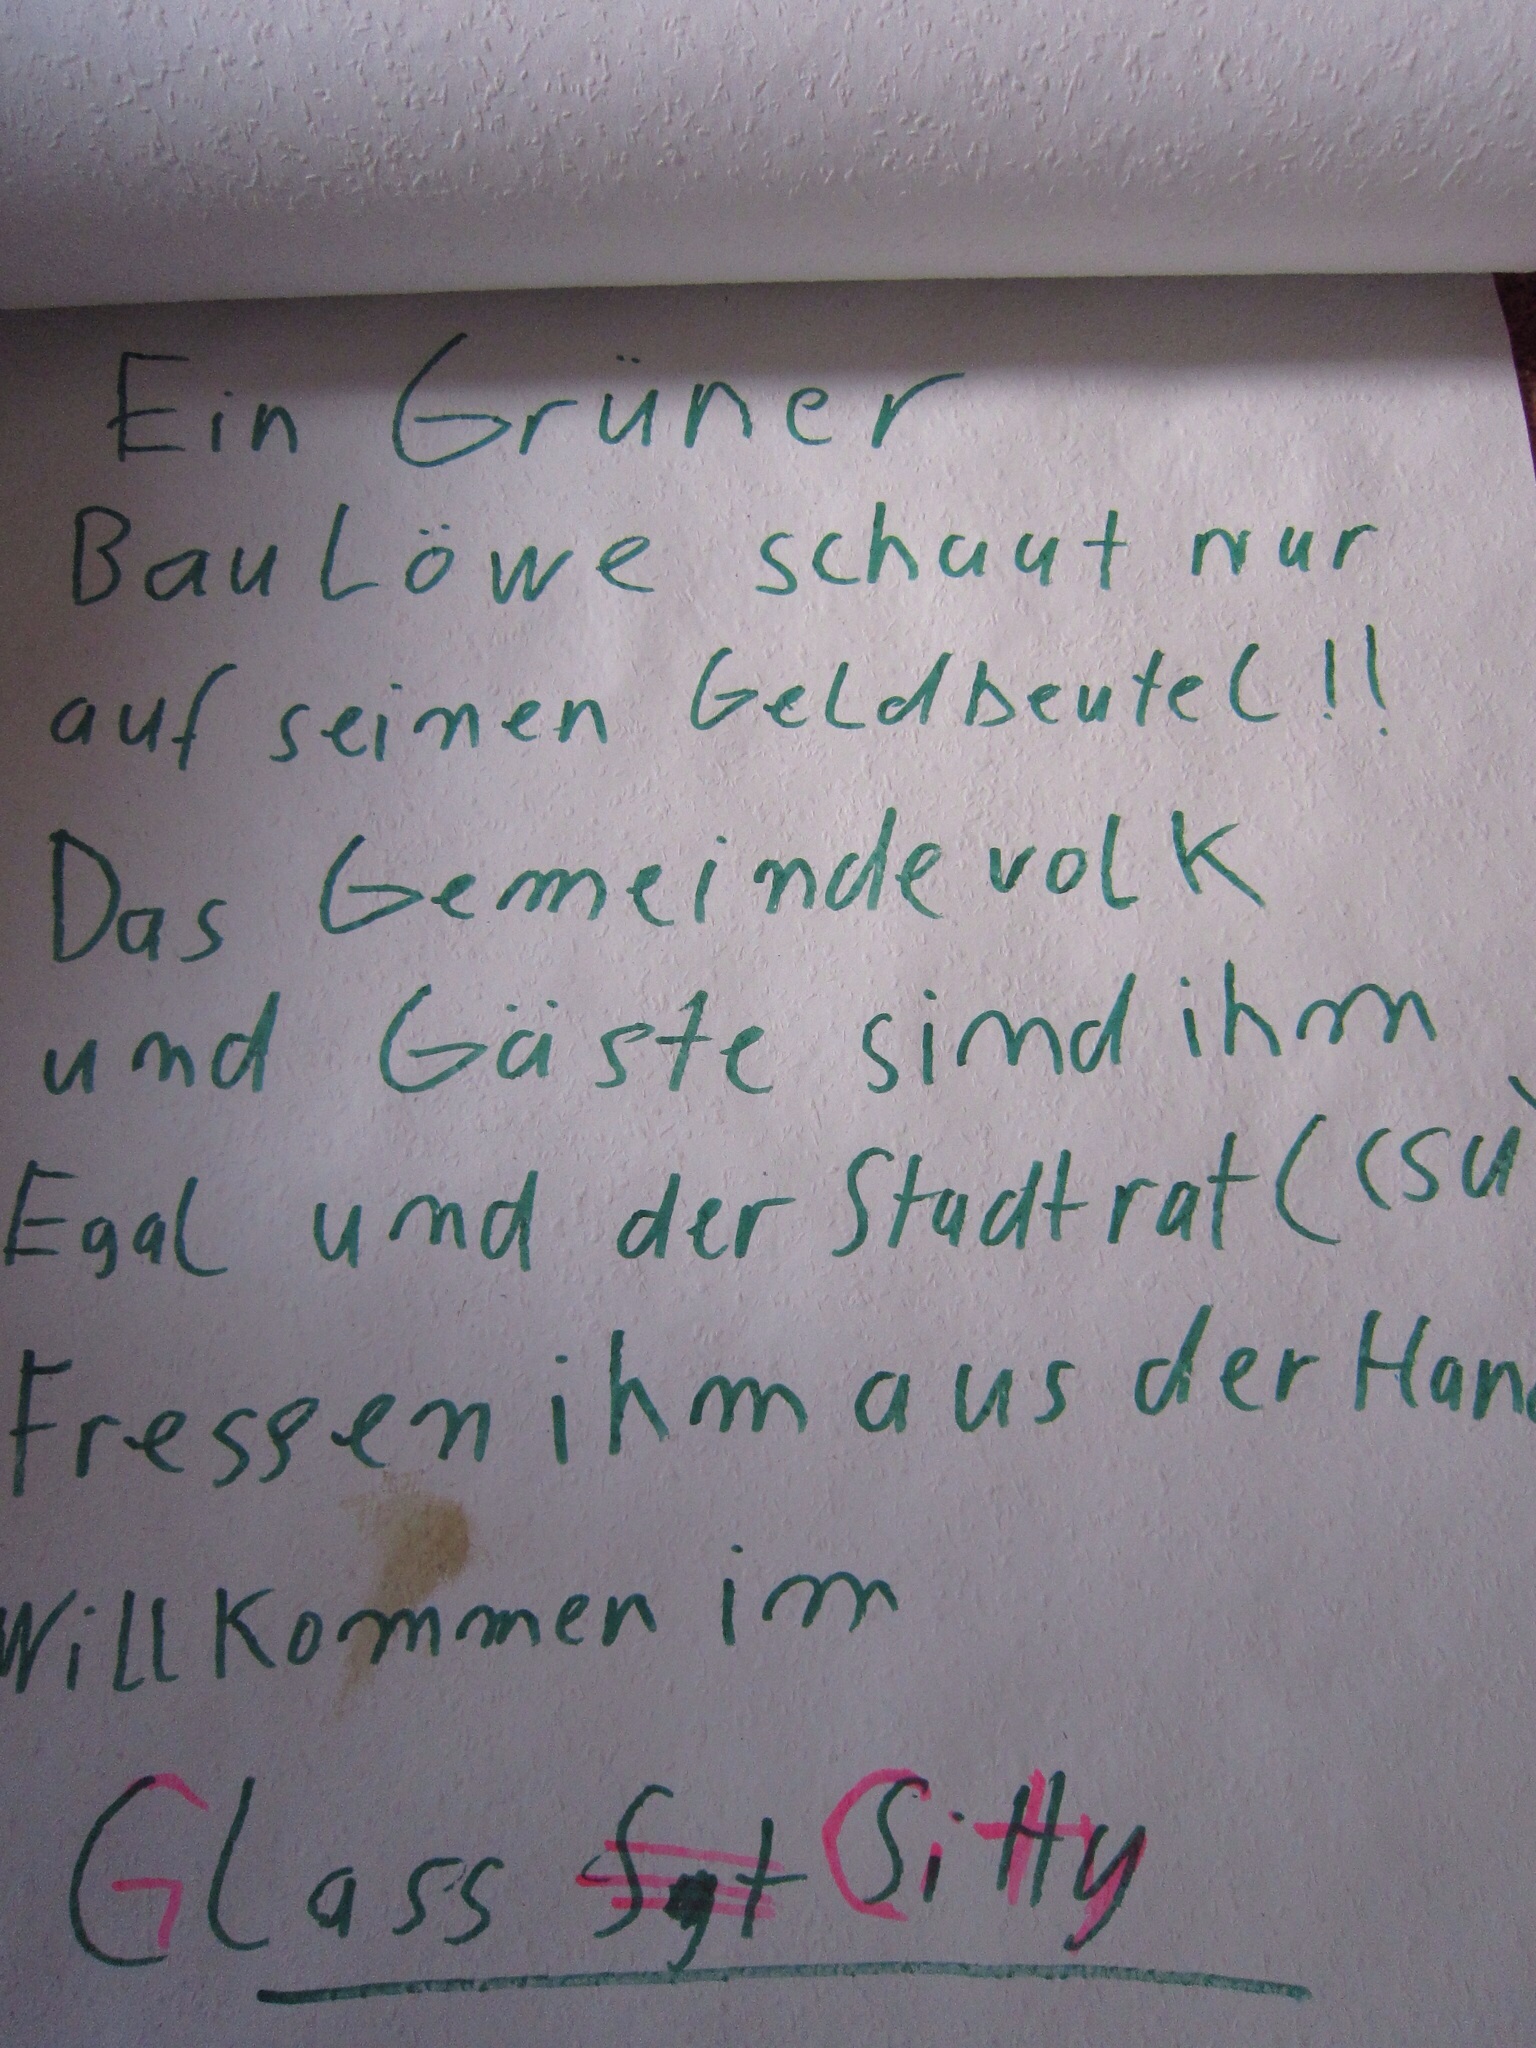 Ein Grüner
BauLöwe schaut nur
auf seinen Geldbeutel!!
Das Gemeindevolk
und Gäste sind ihm
Egal und der Stadtrat (CSU)
Fressen ihm aus der Han
Willkommen im
Glass Citty